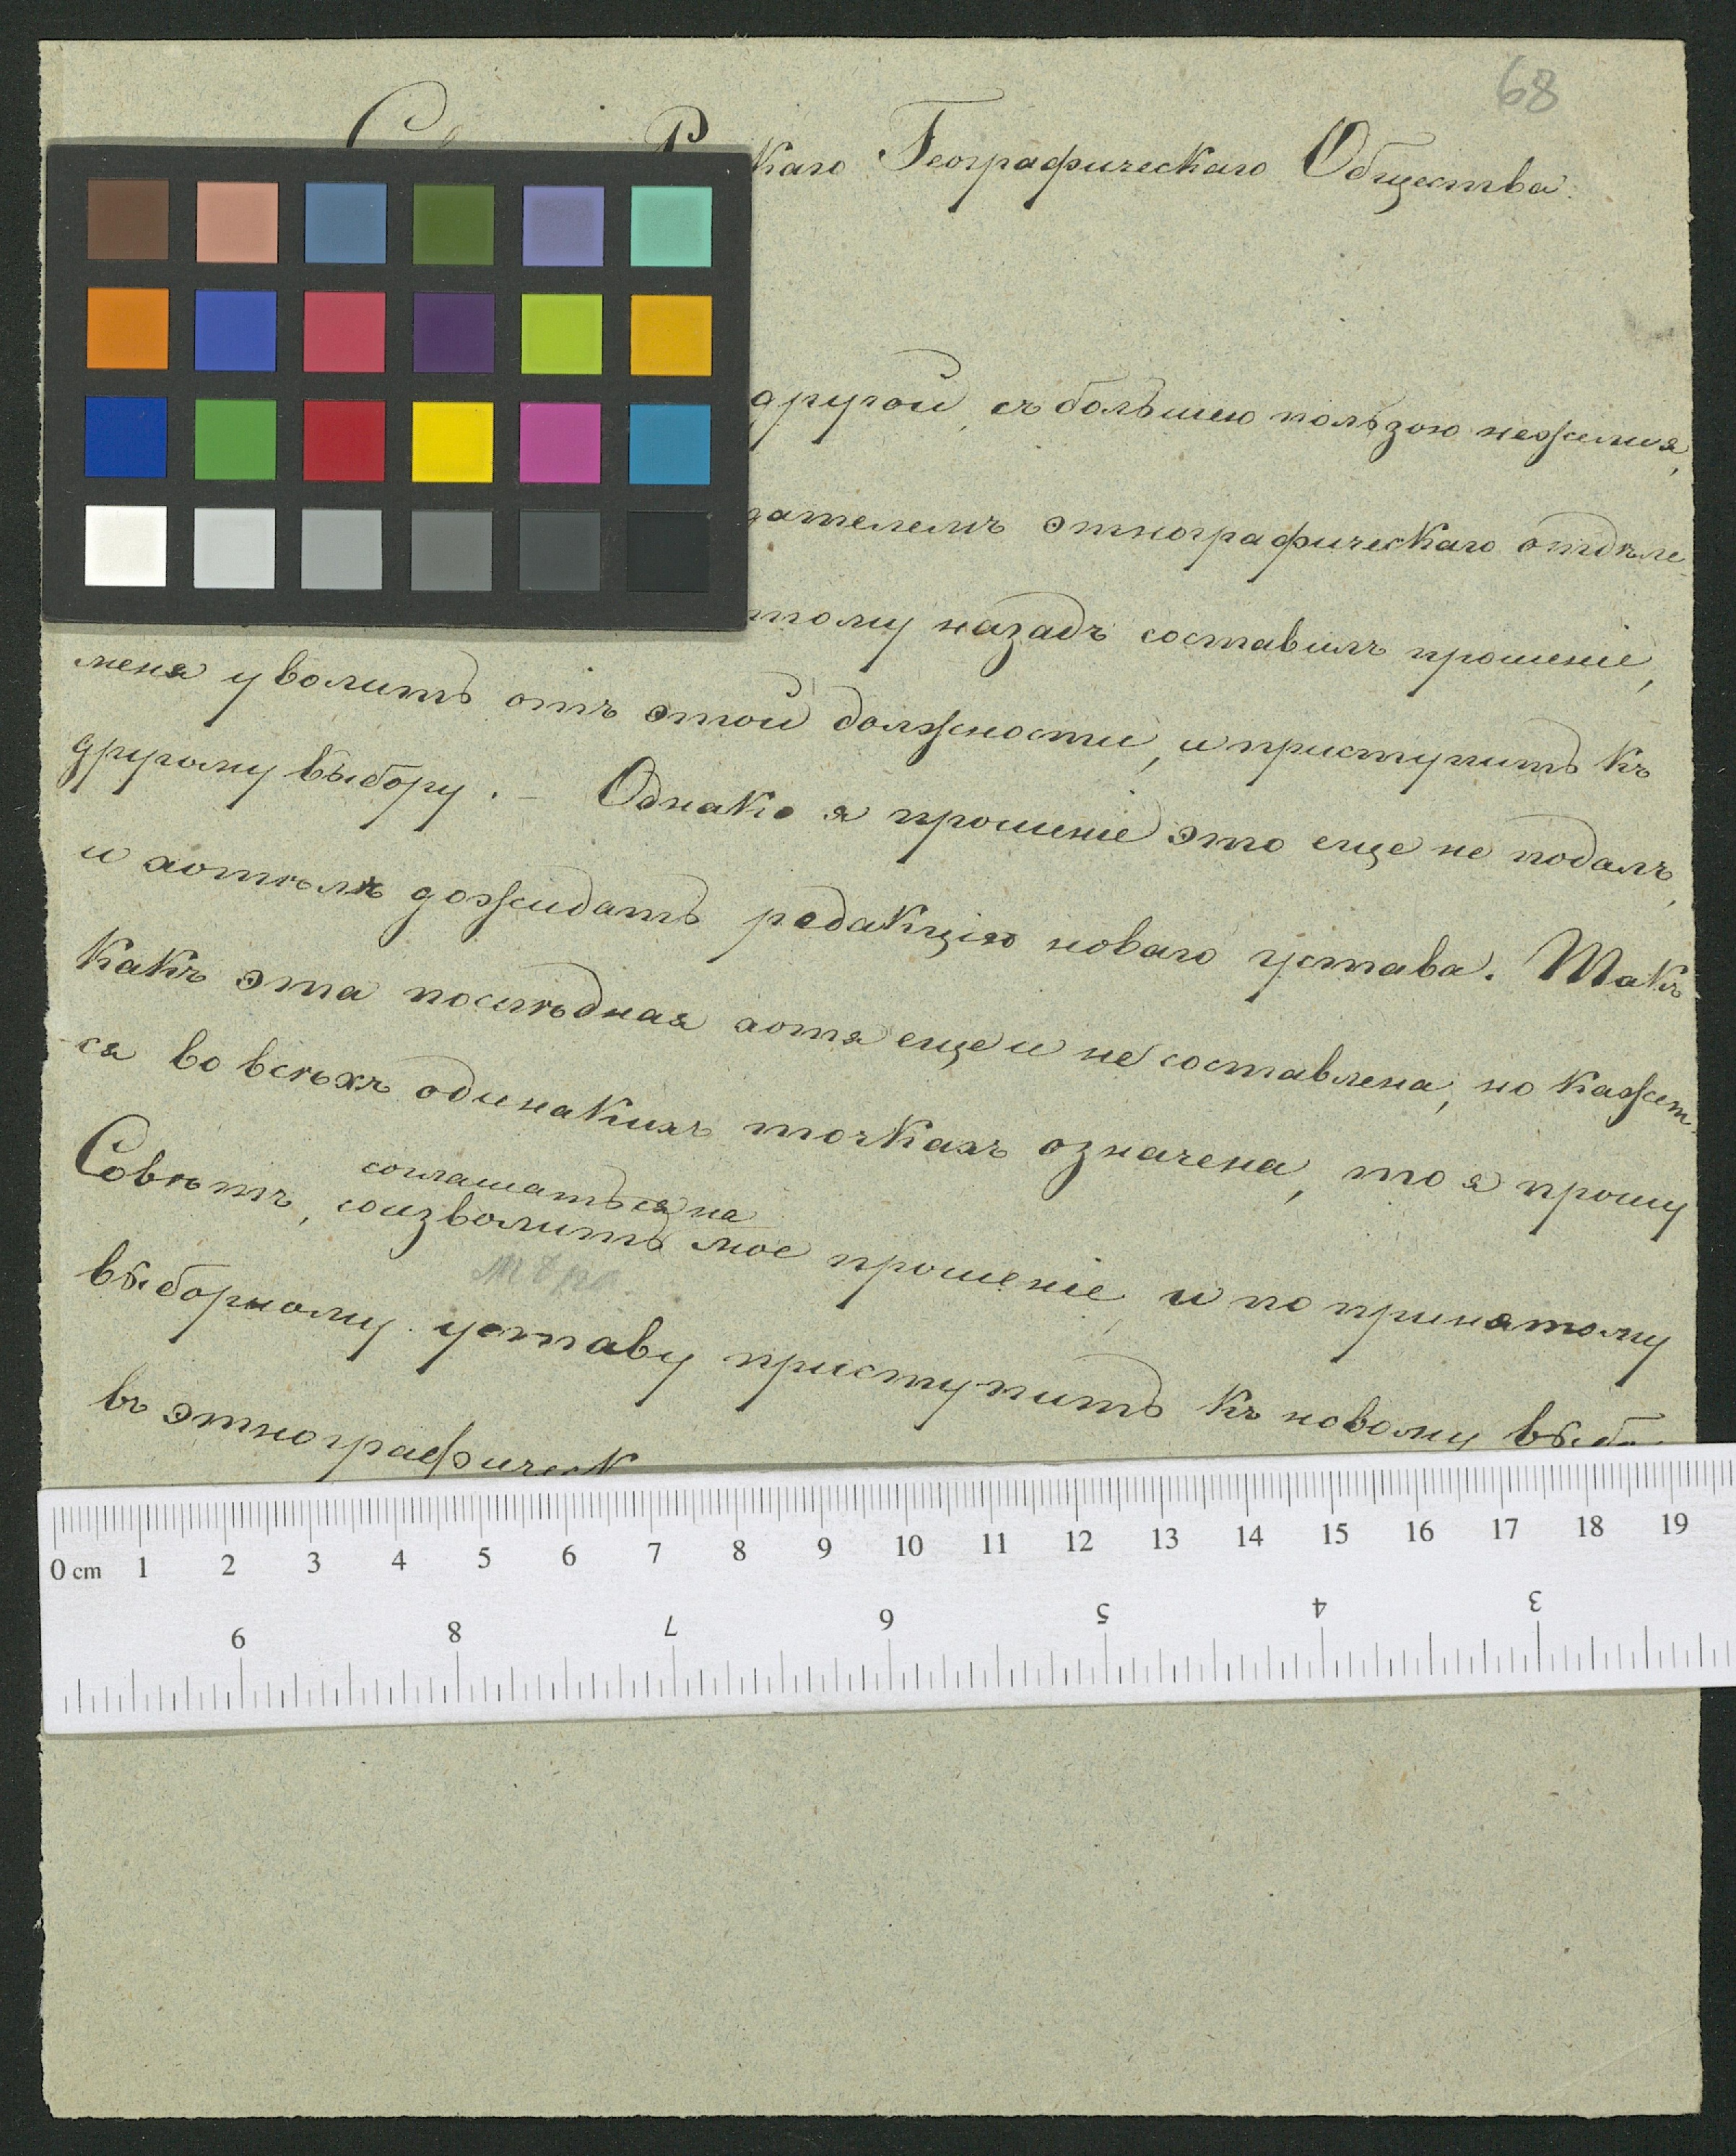 68
каго Географическаго Общества.
другой, съ большею пользою нежели я,
дателемъ этнографическаго отдѣле-
тому назадъ составилъ прошеніе,
меня уволить отъ этой должности, и приступить къ
другому выбору. — Однако я прошеніе это еще не подалъ,
и хотѣлъ дожидать редакцію новаго устава. Такъ
какъ эта послѣдная хотя еще и не составлена, но кажет-
ся во всѣхъ одинакихъ точкахъ означена, то я прошу
соглашаться на
Совѣтъ, соизволить мое прошеніе, и по принятому
выборному уставу приступить къ новому выбо
въ этнографическ
0 cm 1 2 3 4 5 6 7 8 9 10 11 12 13 14 15 16 17 18 19
9 8 7 6 5 4 3